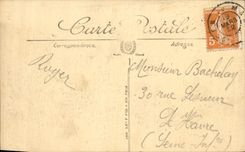 Carte Postale
Correspondance.
Adresse.
Ruger
Monsieur Bacheley
30 rue Lesueur
Havre
(Seine Infre)